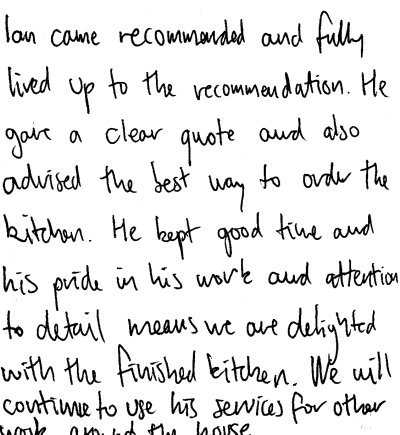 Ian came recommended and fully
lived up to the recommendation. He
gave a clear quote and also
advised the best way to order the
kitchen. He kept good time and
his pride in his work and attention
to detail means we are delighted
with the finished kitchen. We will
continue to use his services for other
work around the house